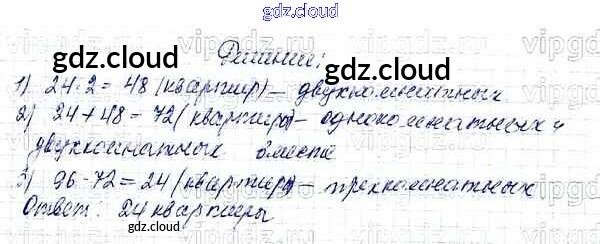 gdz.cloud
Решение:
1) 24·2=48 (квартир) – двухкомнатных
2) 24+48=72 (квартиры) – однокомнатных и
двухкомнатных вместе
3) 96-72=24 (квартиры) – трехкомнатных
Ответ: 24 квартиры
gdz.cloud gdz.cloud
gdz.cloud gdz.cloud